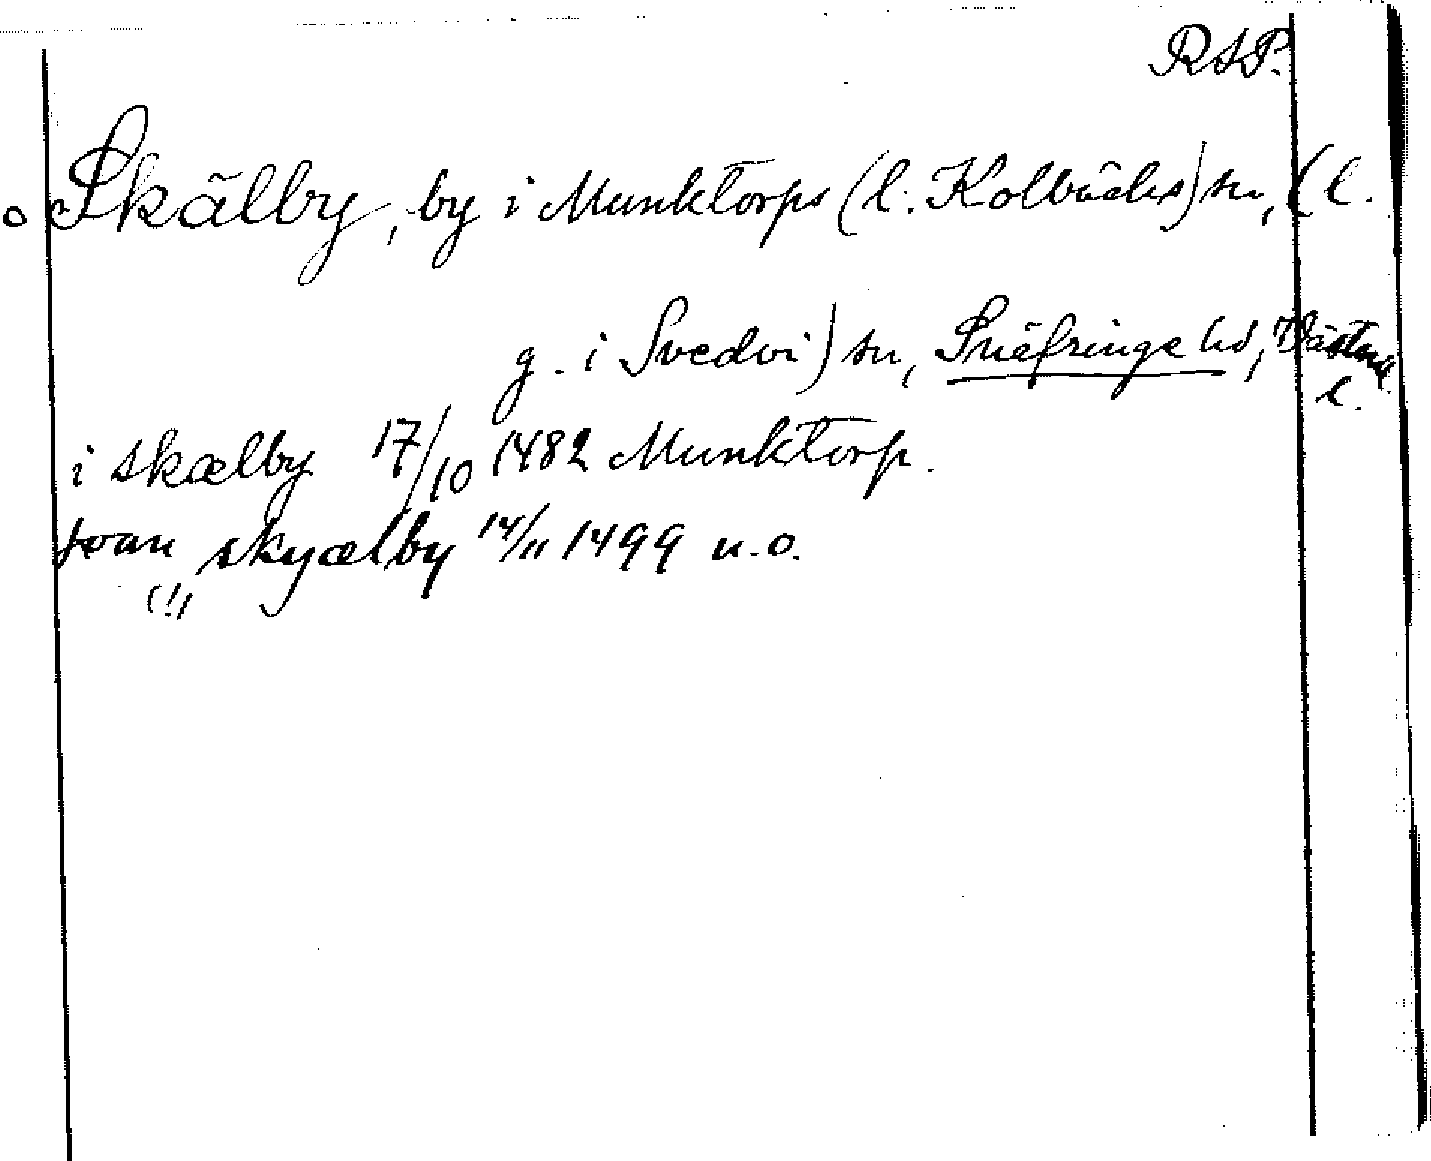 RAP.
Skälby, by i Munktorps (l. Kolbäcks) sn, (l.
g. i Svedvi) sn, Snäfringe hd, Västml.
l.
i skælby 17/10 1482 Munktorp.
foan skyælby 14/11 1499 u.o.
(!)